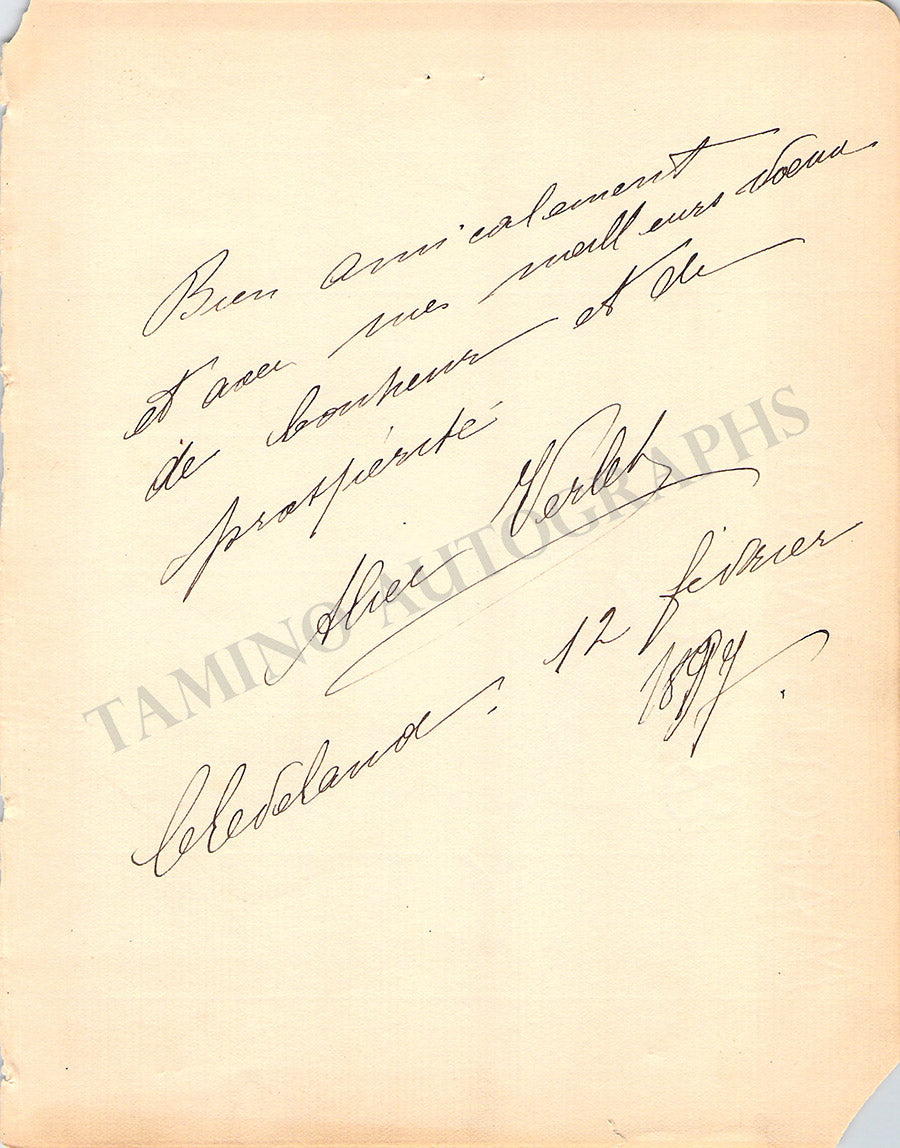 Bien amicalement
et avec mes meilleurs voeux
de bonheur et de
prospérité
Alice Verlet
Cleveland. 12 février
1897.
TAMINO AUTOGRAPHS